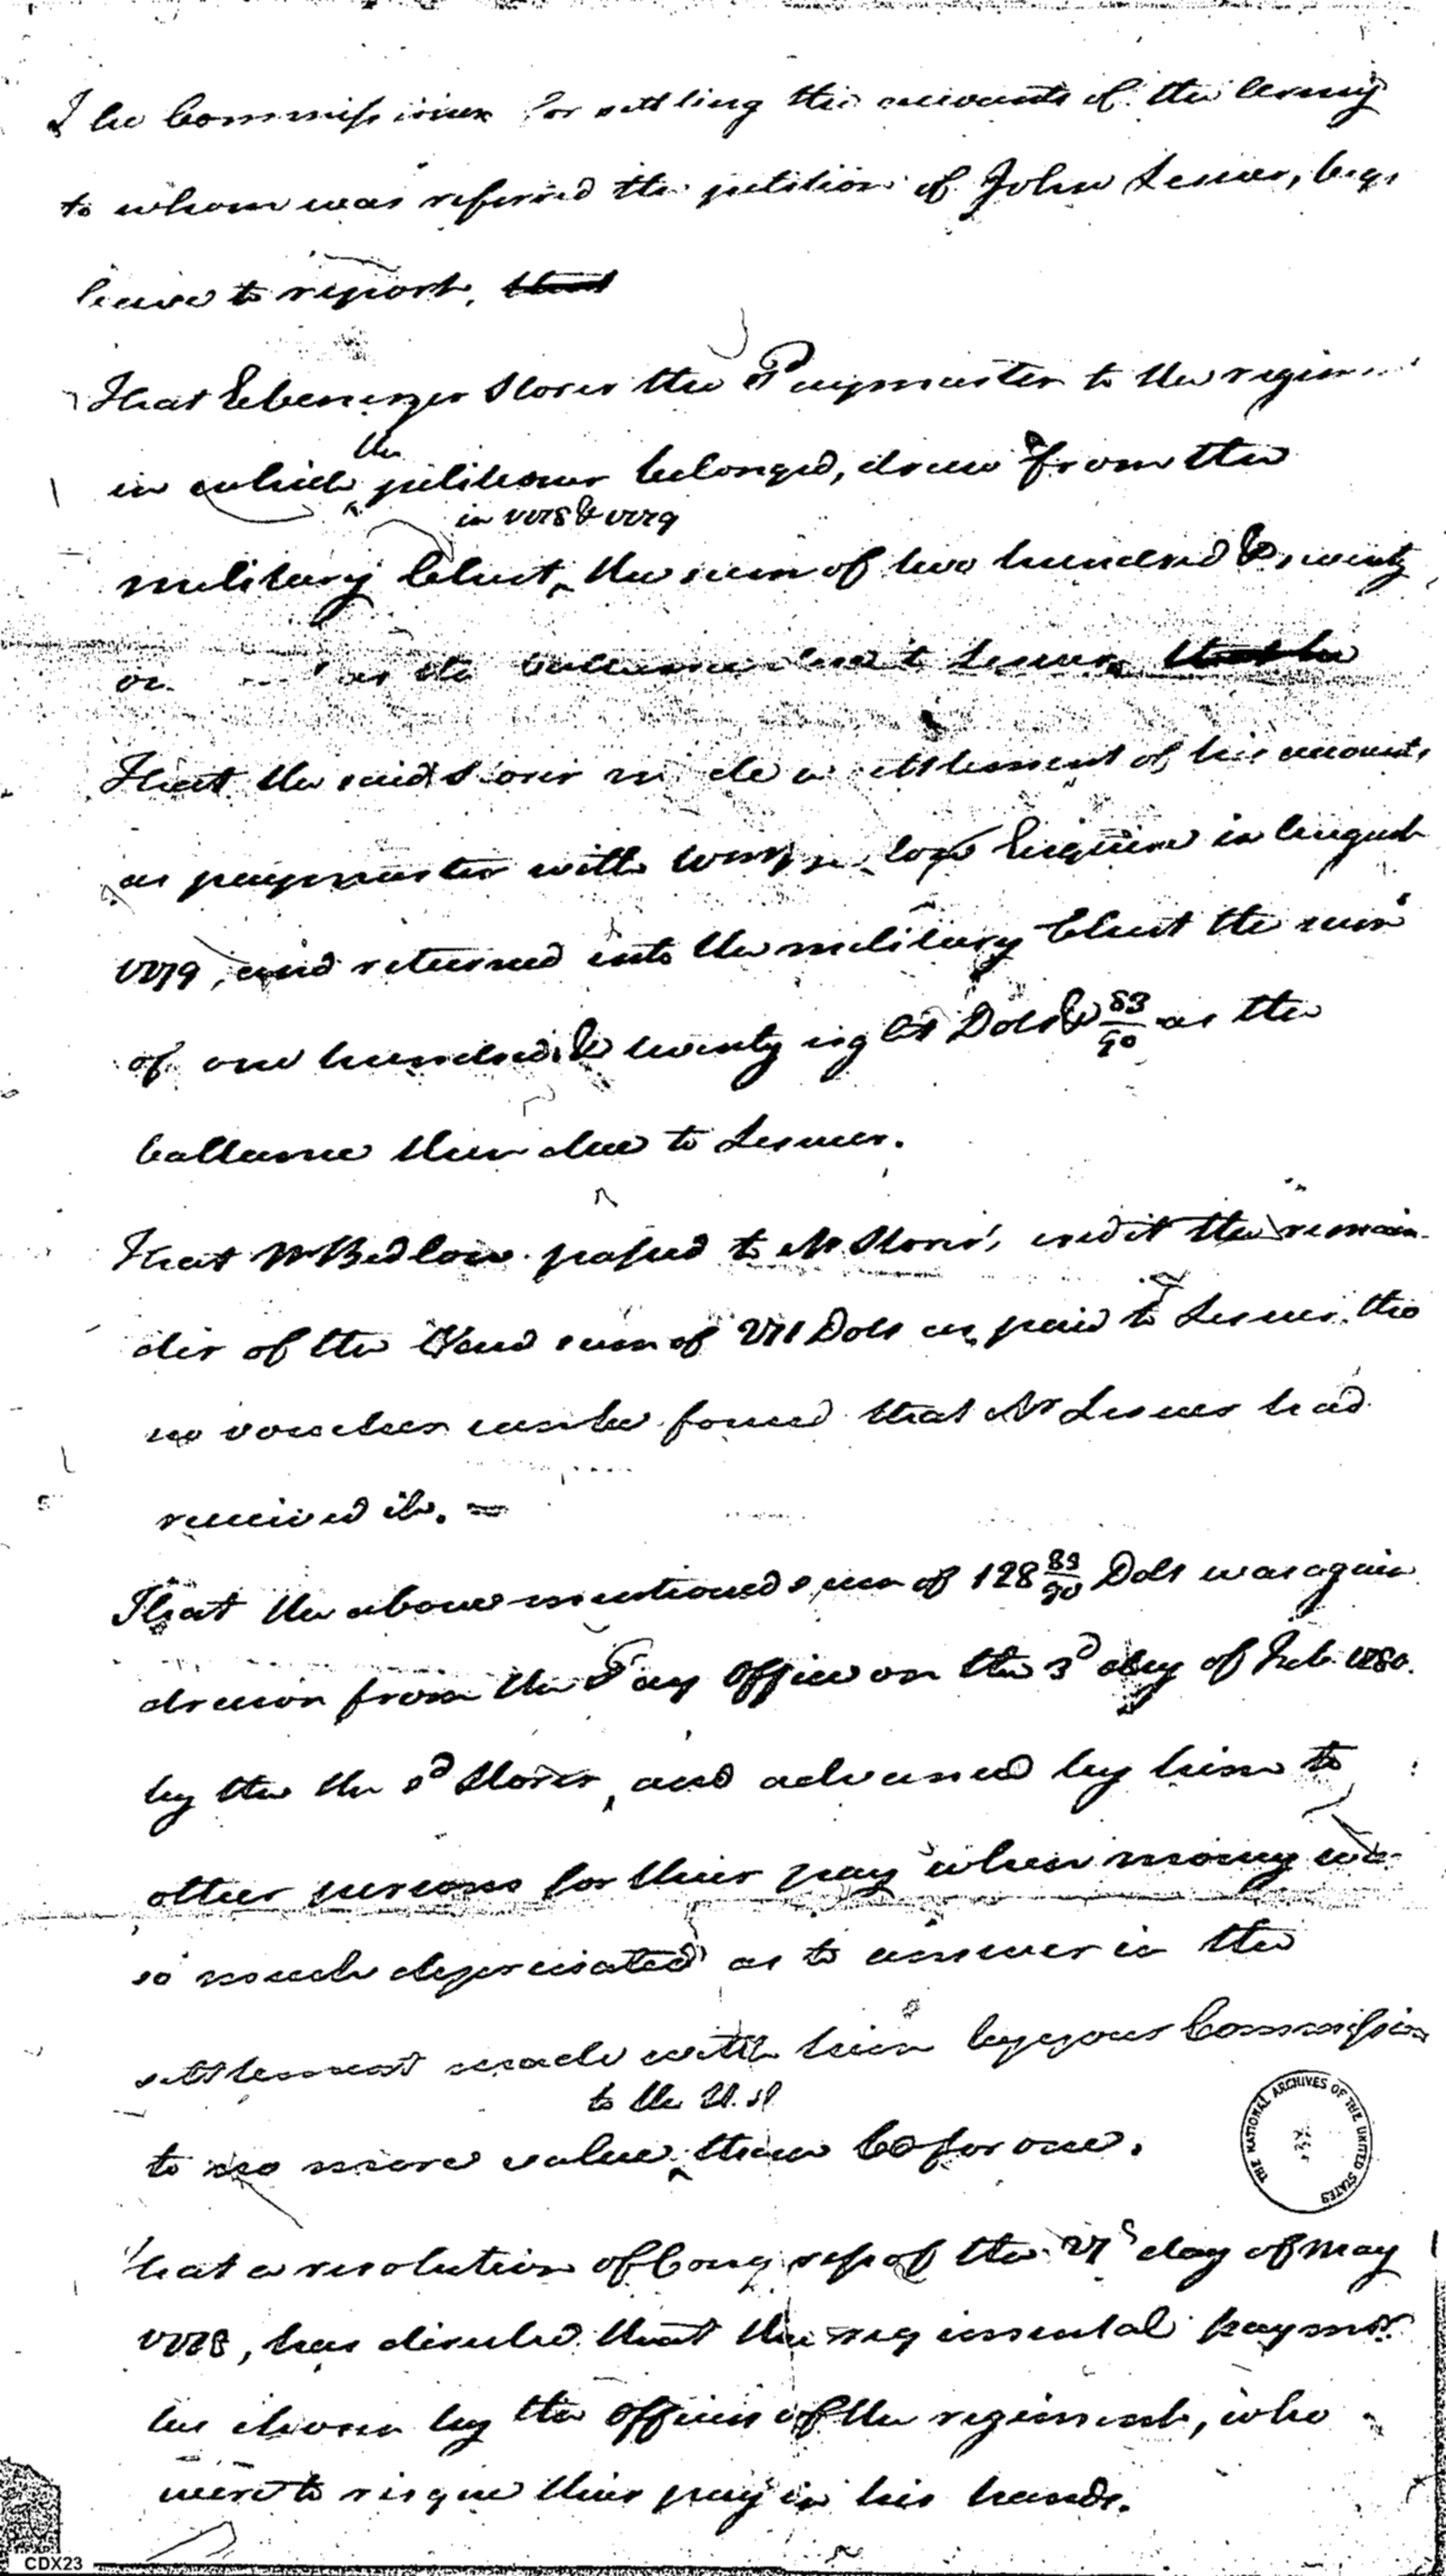 The Commissioner for settling the accounts of the army
to whom was referred the petition of John Lesuer, begs
leave to report, that
That Ebenezer Storer the Paymaster to the regim
the
in which petitioner belonged, drew from the
in 1778 & 1779
military Chest, the sum of two hundred & seventy
as the ballance due to Lesuer, that he
That the said Storer made a settlement of his accounts
as paymaster with Esquire in August
1779, and returned into the military Chest the sum
of one hundred & twenty eight Dols & 83/90 as the
ballance then due to Lesuer.
That Mr Bedlow passed to Mr Storer's credit the remain-
der of the sum of 271 Dols as paid to Lesuer, tho
no voucher can be found that Mr Lesuer had
received it. =
That the above mentioned sum of 128 83/90 Dols was again
drawn from the Pay Office on the 3d day of Feb. 1780.
by the the sd Storer, and advanced by him to
other persons for their pay when money was
so much depreciated as to answer in the
settlement made with him by your Commission
to the U.S
to no more value, than 60 for one.
that a resolution of Congress of the 27 day of May
1778, has directed that the regimental paymr
be chosen by the Officers of the regiment, who
were to risque their pay in his hands.
THE NATIONAL ARCHIVES OF THE UNITED STATES
CDX23